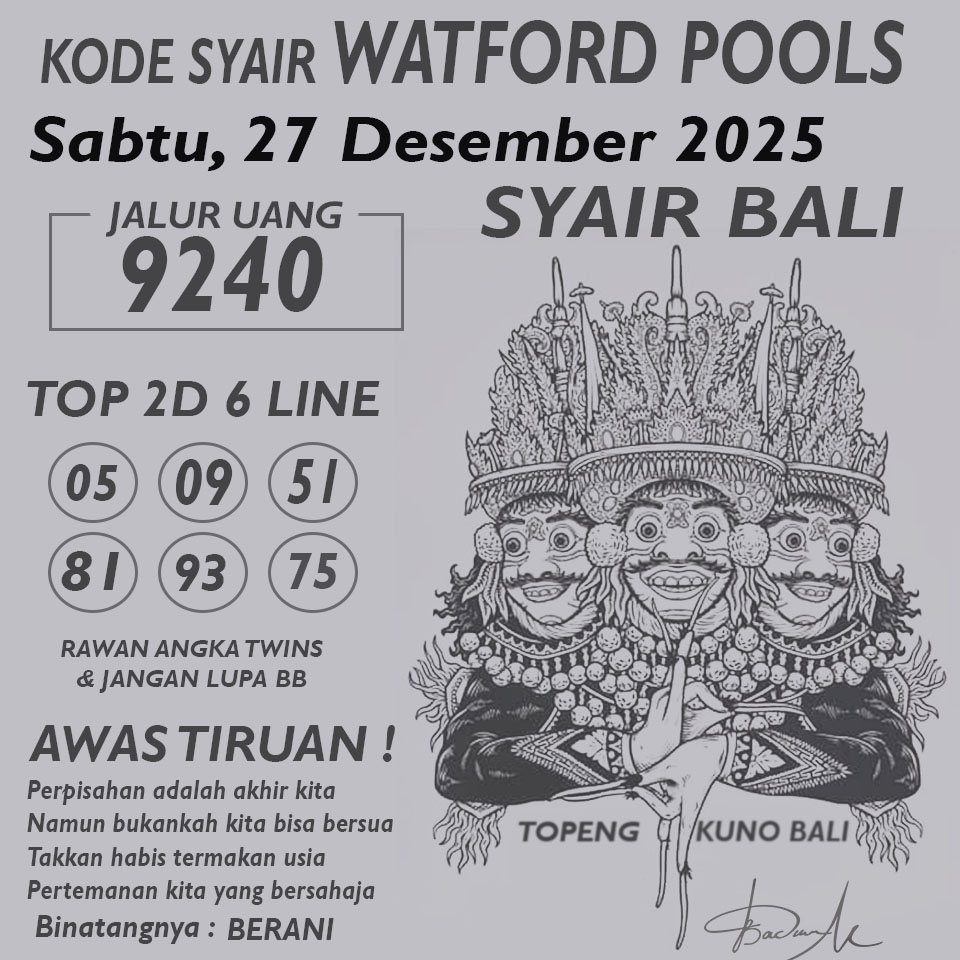 KODE SYAIR WATFORD POOLS
Sabtu, 27 Desember 2025
JALUR UANG
9240
SYAIR BALI
TOP 2D 6 LINE
05 09 51
81 93 75
RAWAN ANGKA TWINS
& JANGAN LUPA BB
AWAS TIRUAN !
Perpisahan adalah akhir kita
Namun bukankah kita bisa bersua
Takkan habis termakan usia
Pertemanan kita yang bersahaja
Binatangnya : BERANI
TOPENG KUNO BALI